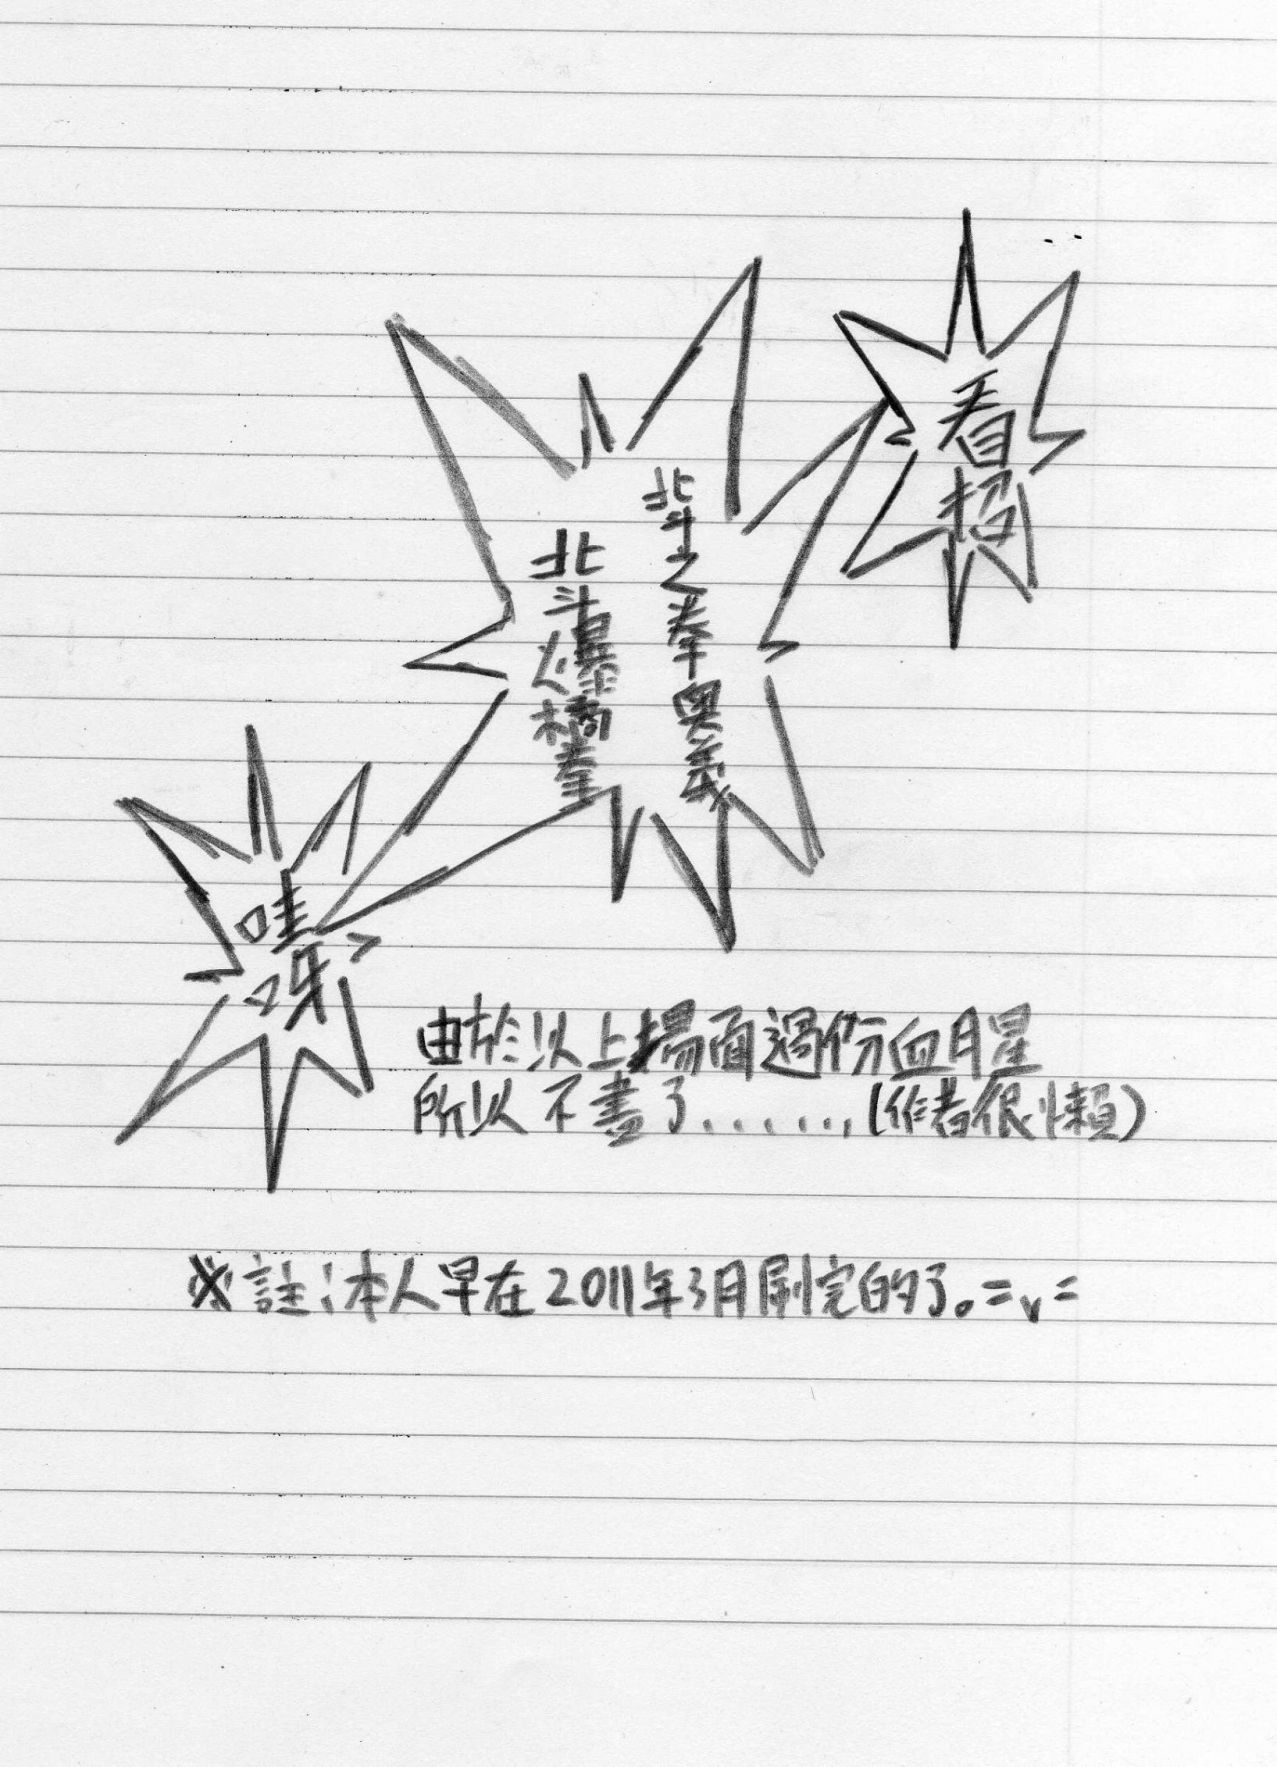 看招
北斗之拳奧義
北斗人爆橋拳
哇
呀
由於以上場面過份血月星
所以不畫了......(作者很懶)
※註:本人早在2011年3月刷完的了。=v=